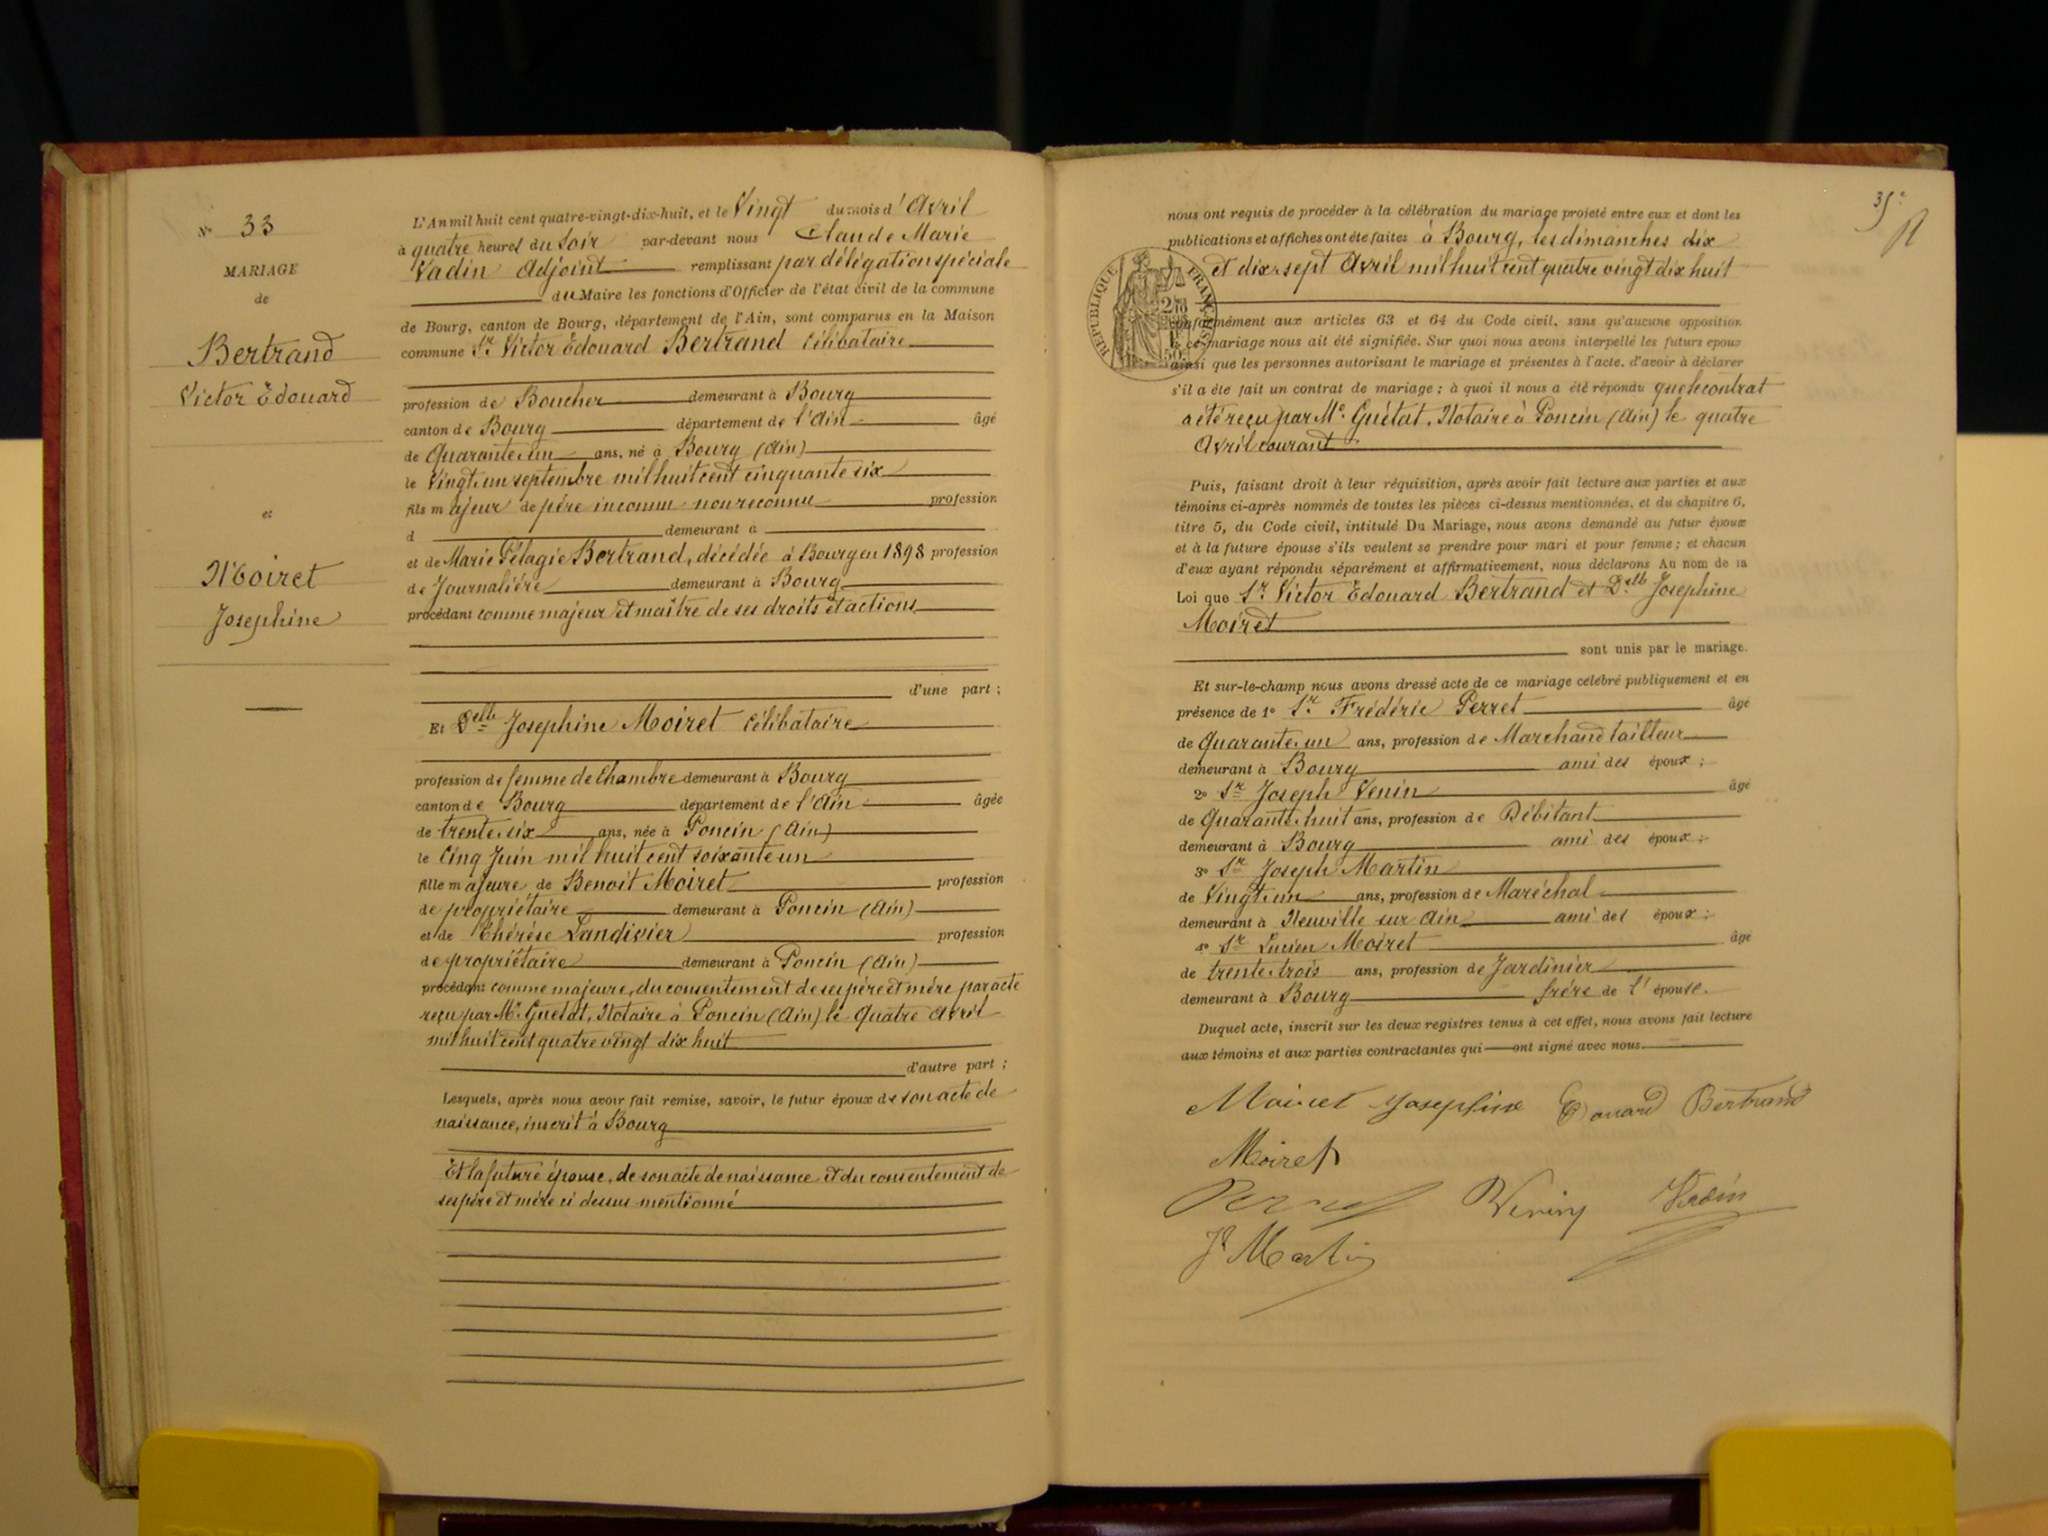 No 33
MARIAGE
de
Bertrand
Victor Edouard
et
Moiret
Josephine
L'An mil huit cent quatre-vingt-dix-huit, et le Vingt du mois d'Avril
à quatre heures du Soir par-devant nous Claude Marie
Vadin Adjoint remplissant par délégation spéciale
du Maire les fonctions d'Officier de l'état civil de la commune
de Bourg, canton de Bourg, département de l'Ain, sont comparus en la Maison
commune Sr Victor Edouard Bertrand Célibataire
profession de Boucher demeurant à Bourg
canton de Bourg département de l'Ain âgé
de Quarante-un ans, né à Bourg (Ain)
le Vingt-un septembre mil huit cent cinquante six
fils majeur de père inconnu non reconnu profession
d demeurant a
et de Marie Pélagie Bertrand, décédée à Bourg en 1898 profession
de Journalière demeurant à Bourg
procédant comme majeur et maître de ses droits et actions
d'une part ;
Et Delle Josephine Moiret Célibataire
profession de femme de Chambre demeurant à Bourg
canton de Bourg département de l'Ain âgée
de trente-six ans, née à Poncin (Ain)
le Cinq Juin mil huit cent soixante un
fille majeure de Benoit Moiret profession
de propriétaire demeurant à Poncin (Ain)
et de Thérèse Landivier profession
de propriétaire demeurant à Poncin (Ain)
procédant comme majeure, du consentement de ses père et mère par acte
reçu par Me Guétat, Notaire à Poncin (Ain) le Quatre Avril
mil huit cent quatre vingt dix huit
d'autre part ;
Lesquels, après nous avoir fait remise, savoir, le futur époux de son acte de
naissance, inscrit à Bourg
Et la future épouse, de son acte de naissance et du consentement de
ses père et mère ci dessus mentionné
35e
nous ont requis de procéder à la célébration du mariage projeté entre eux et dont les
publications et affiches ont été faites à Bourg, les dimanches dix
et dix-sept Avril mil huit cent quatre vingt dix huit
RÉPUBLIQUE FRANÇAISE
conformément aux articles 63 et 64 du Code civil, sans qu'aucune opposition
à ce mariage nous ait été signifiée. Sur quoi nous avons interpellé les futurs époux
ainsi que les personnes autorisant le mariage et présentes à l'acte, d'avoir à déclarer
s'il a été fait un contrat de mariage ; à quoi il nous a été répondu que le contrat
a été reçu par Me Guétat, Notaire à Poncin (Ain) le quatre
Avril courant
Puis, faisant droit à leur réquisition, après avoir fait lecture aux parties et aux
témoins ci-après nommés de toutes les pièces ci-dessus mentionnées, et du chapitre 6,
titre 5, du Code civil, intitulé Du Mariage, nous avons demandé au futur époux
et à la future épouse s'ils veulent se prendre pour mari et pour femme ; et chacun
d'eux ayant répondu séparément et affirmativement, nous déclarons Au nom de la
Loi que Sr Victor Edouard Bertrand et Delle Josephine
Moiret
sont unis par le mariage.
Et sur-le-champ nous avons dressé acte de ce mariage célébré publiquement et en
présence de 1o Sr Frédéric Perret âgé
de Quarante-un ans, profession de Marchand tailleur
demeurant à Bourg ami des époux ;
2o Sr Joseph Venin âgé
de Quarante-huit ans, profession de Débitant
demeurant à Bourg ami des époux ;
3o Sr Joseph Martin
de Vingt-un ans, profession de Maréchal
demeurant à Neuville sur Ain ami des époux ;
4o Sr Lucien Moiret âgé
de trente-trois ans, profession de Jardinier
demeurant à Bourg frère de l'épouse.
Duquel acte, inscrit sur les deux registres tenus à cet effet, nous avons fait lecture
aux témoins et aux parties contractantes qui ont signé avec nous
Moiret Josephine Edouard Bertrand
Moiret
Perret Venin Vadin
Jh Martin